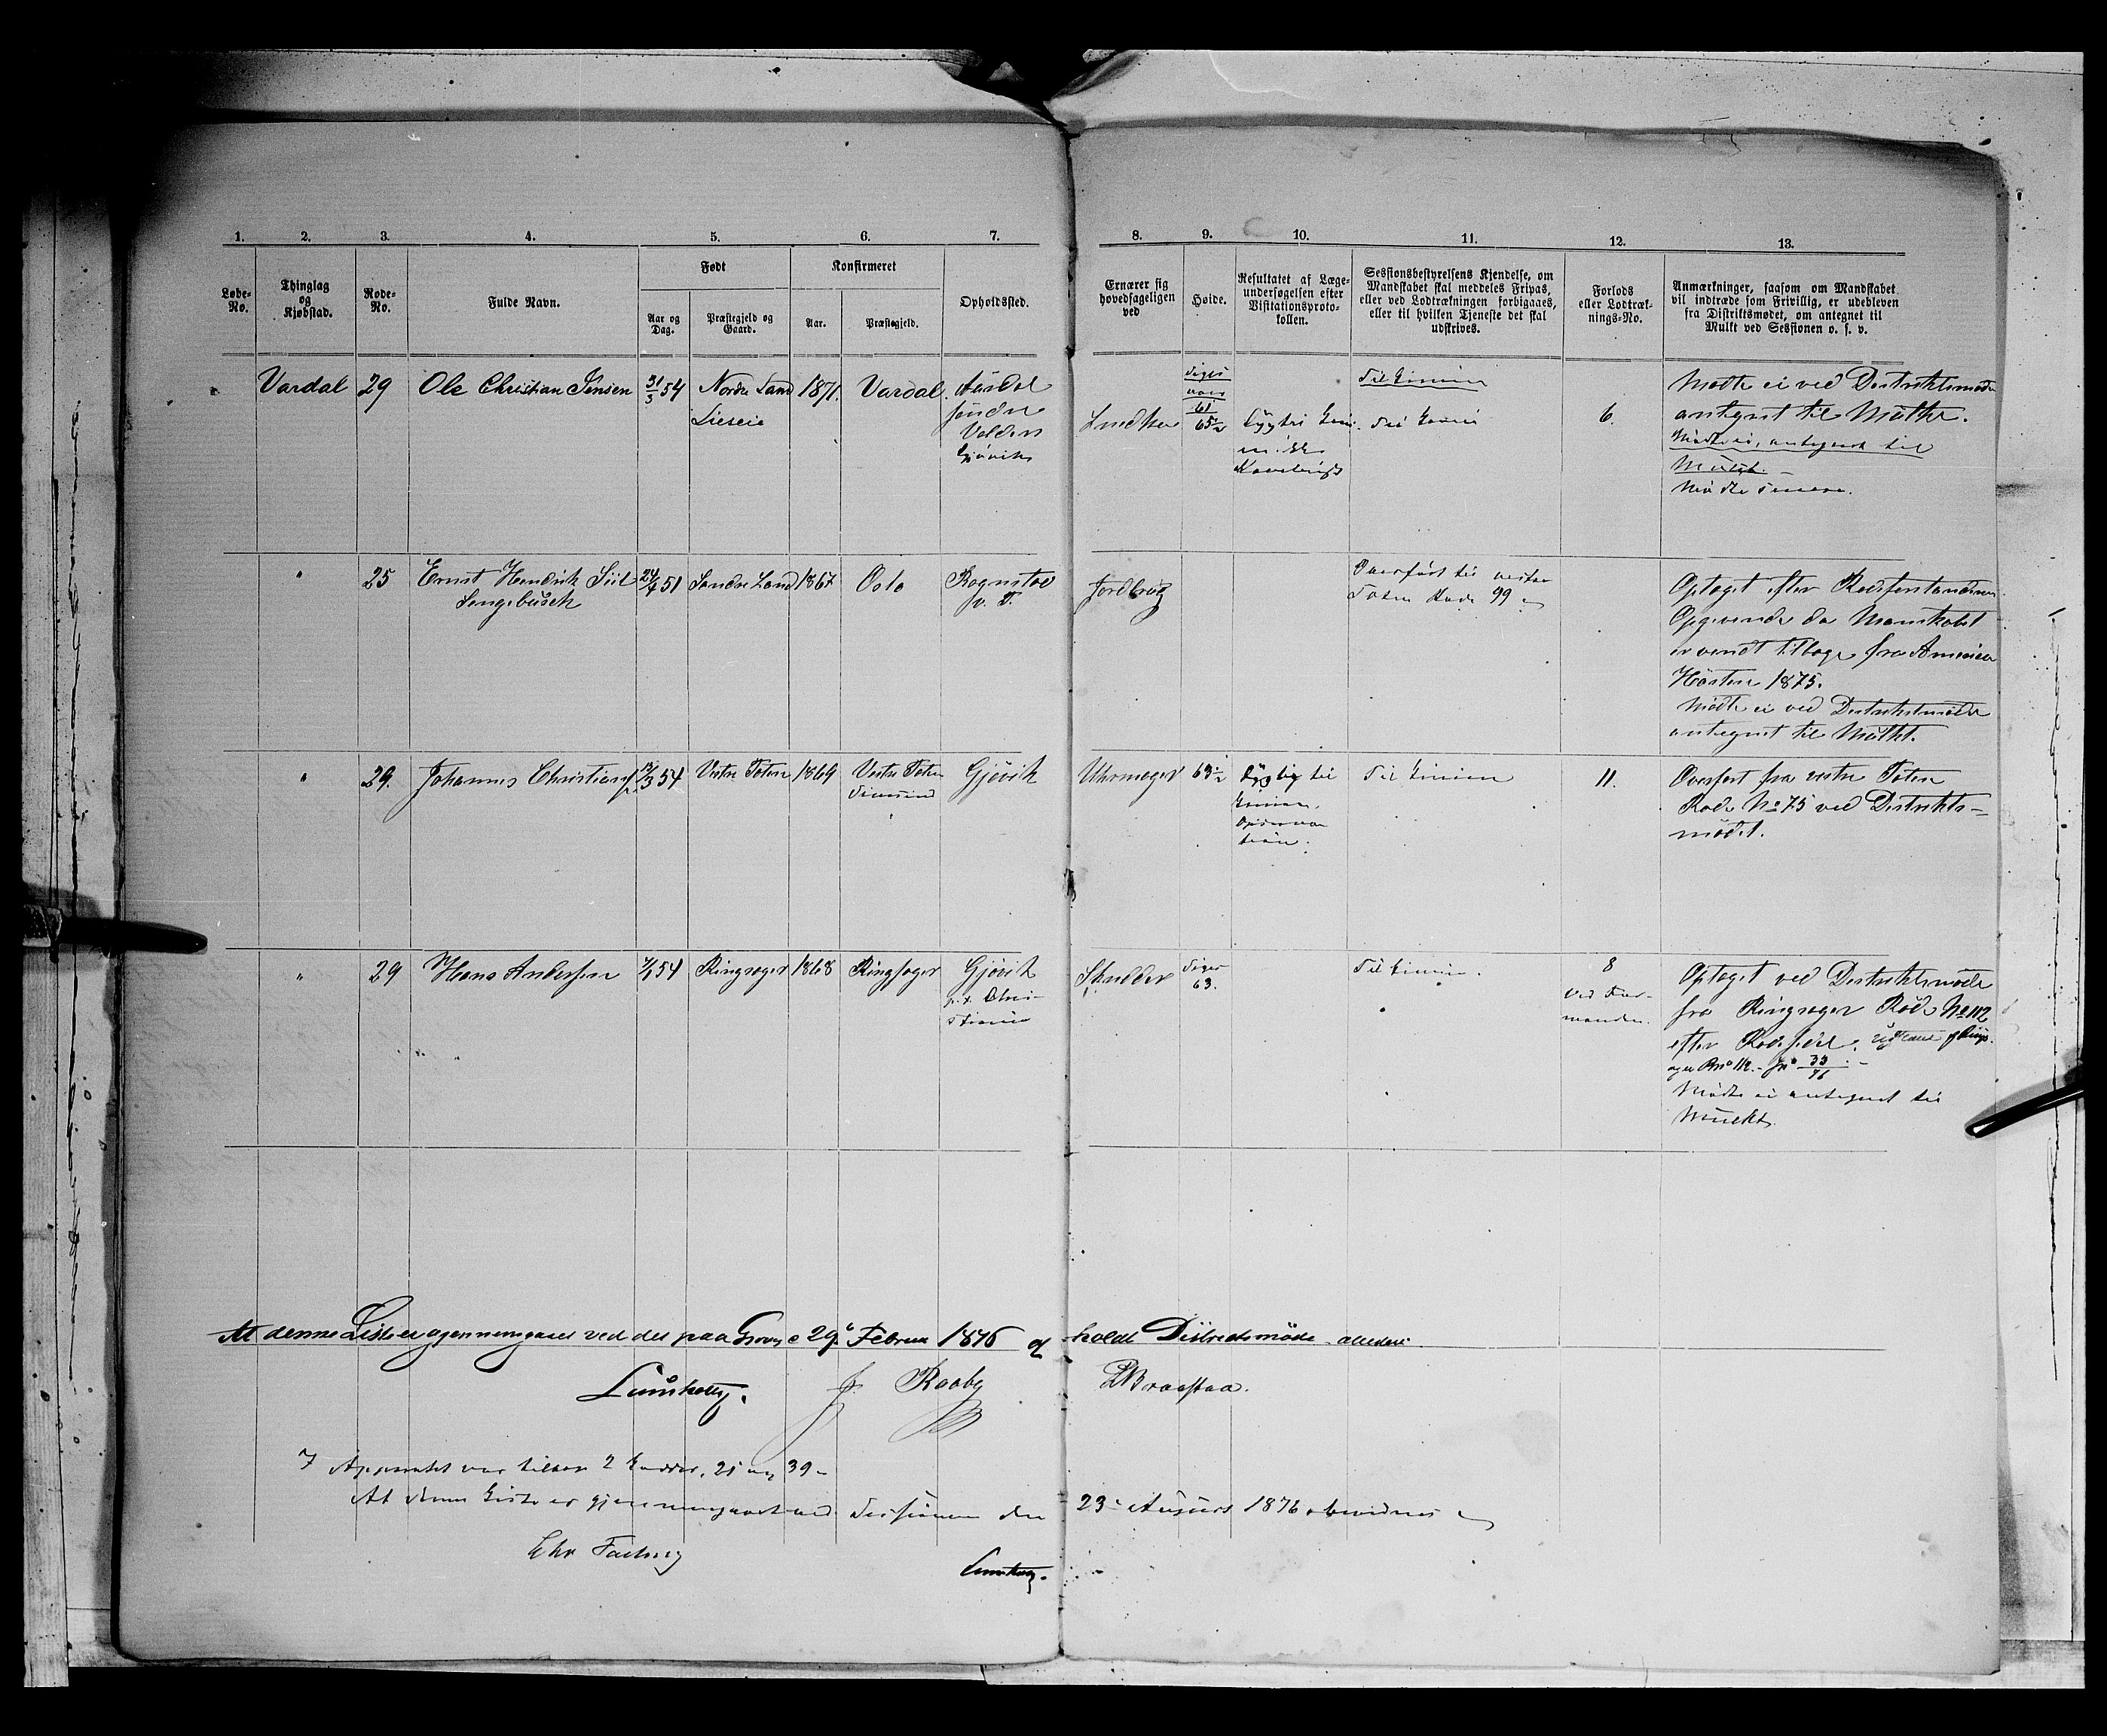 1. 2. 3. 4. 5. 6. 7. 8. 9. 10. 11. 12. 13.
Løbe-
No.
Thinglag
og
Kjøbstad.
Rode-
No.
Fulde Navn.
Født
Aar og
Dag.
Præstegjeld og
Gaard.
Konfirmeret
Aar.
Præstegjeld.
Opholdssted.
Ernærer sig
hovedsageligen
ved
Høide.
Resultatet af Læge-
undersøgelsen efter
Visitationsproto-
kollen.
Sessionsbestyrelsens Kjendelse, om
Mandskabet skal meddeles Fripas,
eller ved Lodtrækningen forbigaaes,
eller til hvilken Tjeneste det skal
udskrives.
Forlods
eller Lodtræk-
nings-No.
Anmærkninger, saasom om Mandskabet
vil indtræde som Frivillig, er udebleven
fra Distriktsmødet, om antegnet til
Mulkt ved Sessionen o. s. v.
Vardal 29 Ole Christian Jensen 31/3 54 Nordre Land 1871. Vardal.
Lieseie
Søndre
Valders
Gjøvik
61
65½
Til Linien
6.
Mødte ei ved Distriktsmøde
antegnet til Mulkt.
Mødte ei, antegnet til
Mulkt.
Mødte senere.
" 25 Ernst Hendrik Siil 24/4 51 Søndre Land 1867 Oslo Rognstad
Langebusch v. T.
Jordbrug
Overført til vestre
Toten Rode 99
Optaget efter Rodeforstanderens
Opgivende da Manskabet
er vendt tilbage fra America
Høsten 1875.
Mødte ei ved Distriktsmøde
antegnet til Mulkt.
" 29. Johannes Christians. 54 Vestre Toten 1869 Vestre Toten Gjøvik
Uhrmager 63½ Dygtig til Til Linien 11.
Linien.
Overført fra vestre Toten
Rode No 75 ved Distrikts-
mødet.
" 29 Hans Andersen 54 Ringsager 1868 Ringsager Gjøvik
p. t. Chri-
stiania
Skrædder 63. Til Linien. 8
ved For-
manden.
Optaget ved Distriktsmøde
fra Ringsager Rode No 112
efter Rodesedel.
Mødte ei antegnet til
Mulkt.
At denne Liste er gjennemgaaet ved det paa Grove 29de Februar 1876 af-
holdt Distriktsmøde attesteres.
J. Raaby
Braastad.
At denne Liste er gjennemgaaet ved Sessionen den 23de August 1876 bevidnes